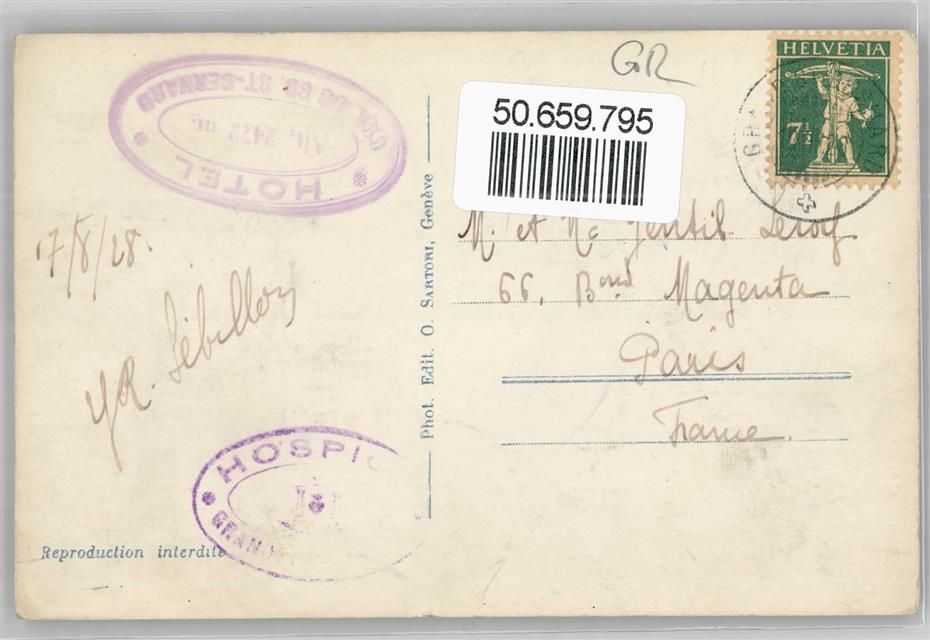 GR
HELVETIA
7½
50.659.795
HOTEL
COL DU GD. ST-BERNARD
Alt. 2472 m.
17/8/28.
Phot. Edit. O. SARTORI, Genève
M. et Me Gentil-Leroy
66, Bord Magenta
Paris
France.
HOSPIC
GRAN
Reproduction interdite